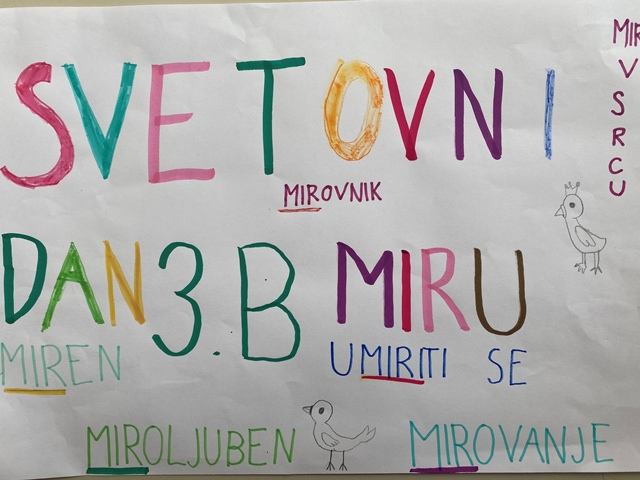 SVETOVNI
MIROVNIK
DAN 3.B MIRU
MIREN
UMIRITI SE
MIROLJUBEN
MIROVANJE
MIR
V
S
R
C
U